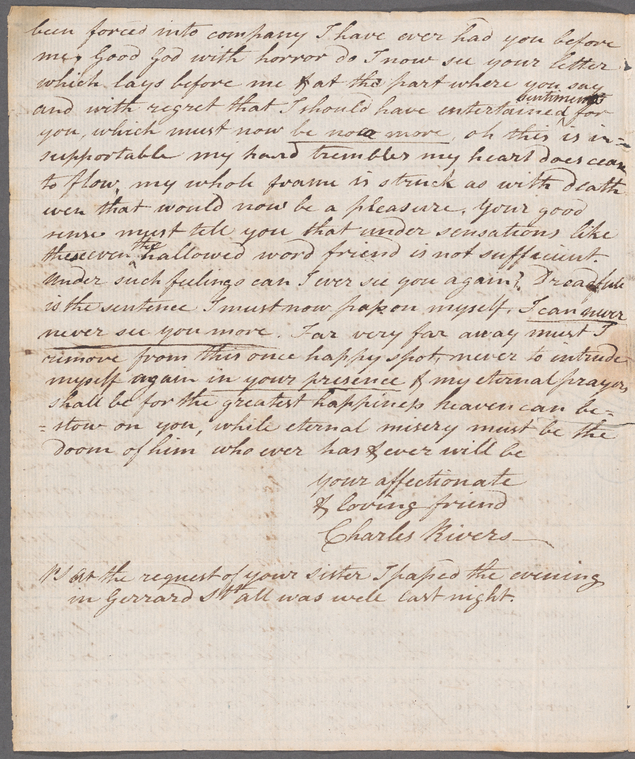 been forced into company I have ever had you before
me, Good God with horror do I now see your letter
which lays before me & at the part where you say
and with regret that I should have entertained sentiments for
you, which must now be no more, oh this is in=
supportable my hand trembles my heart does cease
to flow, my whole frame is struck as with death
even that would now be a pleasure, Your good
sense must tell you that under sensations like
these even the hallowed word friend is not sufficient
Under such feelings can I ever see you again? Dreadful
is the sentence I must now pass on myself, I can never
never see you more. Far very far away must I
remove from this once happy spot, never to intrude
myself again in your presence & my eternal prayers
shall be for the greatest happiness heaven can be=
=stow on you, while eternal misery must be the
Doom of him who ever has & ever will be
your affectionate
& loving friend
Charles Rivers
PS At the request of your sister I passed the evening
in Gerrard St all was well last night.